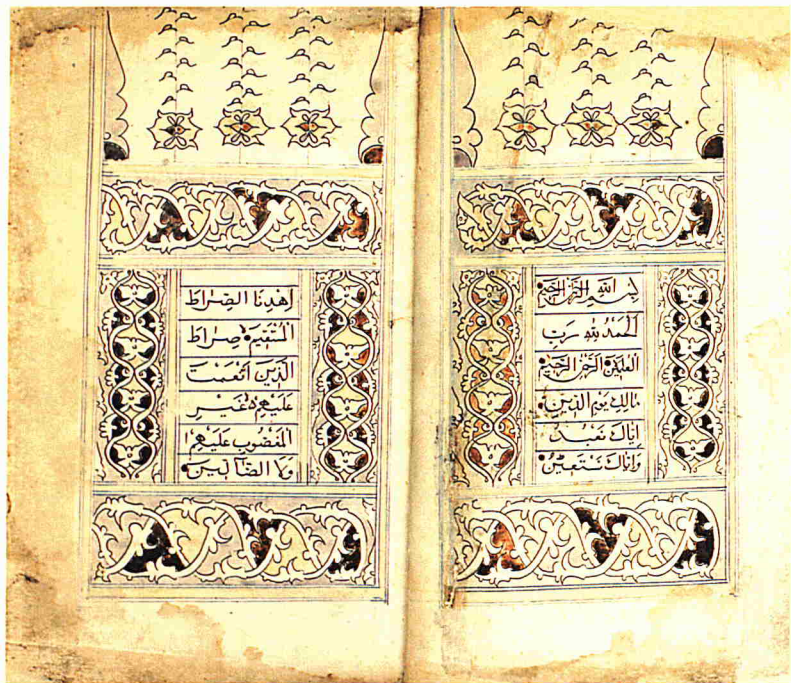 بسم الله الرحمن الرحيم
الحمد لله رب
العلمين الرحمن الرحيم
مالك يوم الدين
اياك نعبد
واياك نستعين
اهدنا الصراط
المستقيم صراط
الذين انعمت
عليهم غير
المغضوب عليهم
ولا الضالين